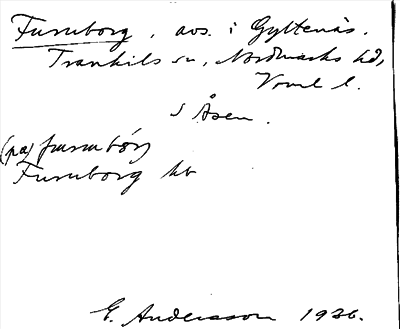 Furuborg, avs. i Gyltenäs.
Trankils sn, Nordmarks hd,
Vrml l.
S Åsen.
(på) furubórj
Furuborg hb
E. Andersson 1926.